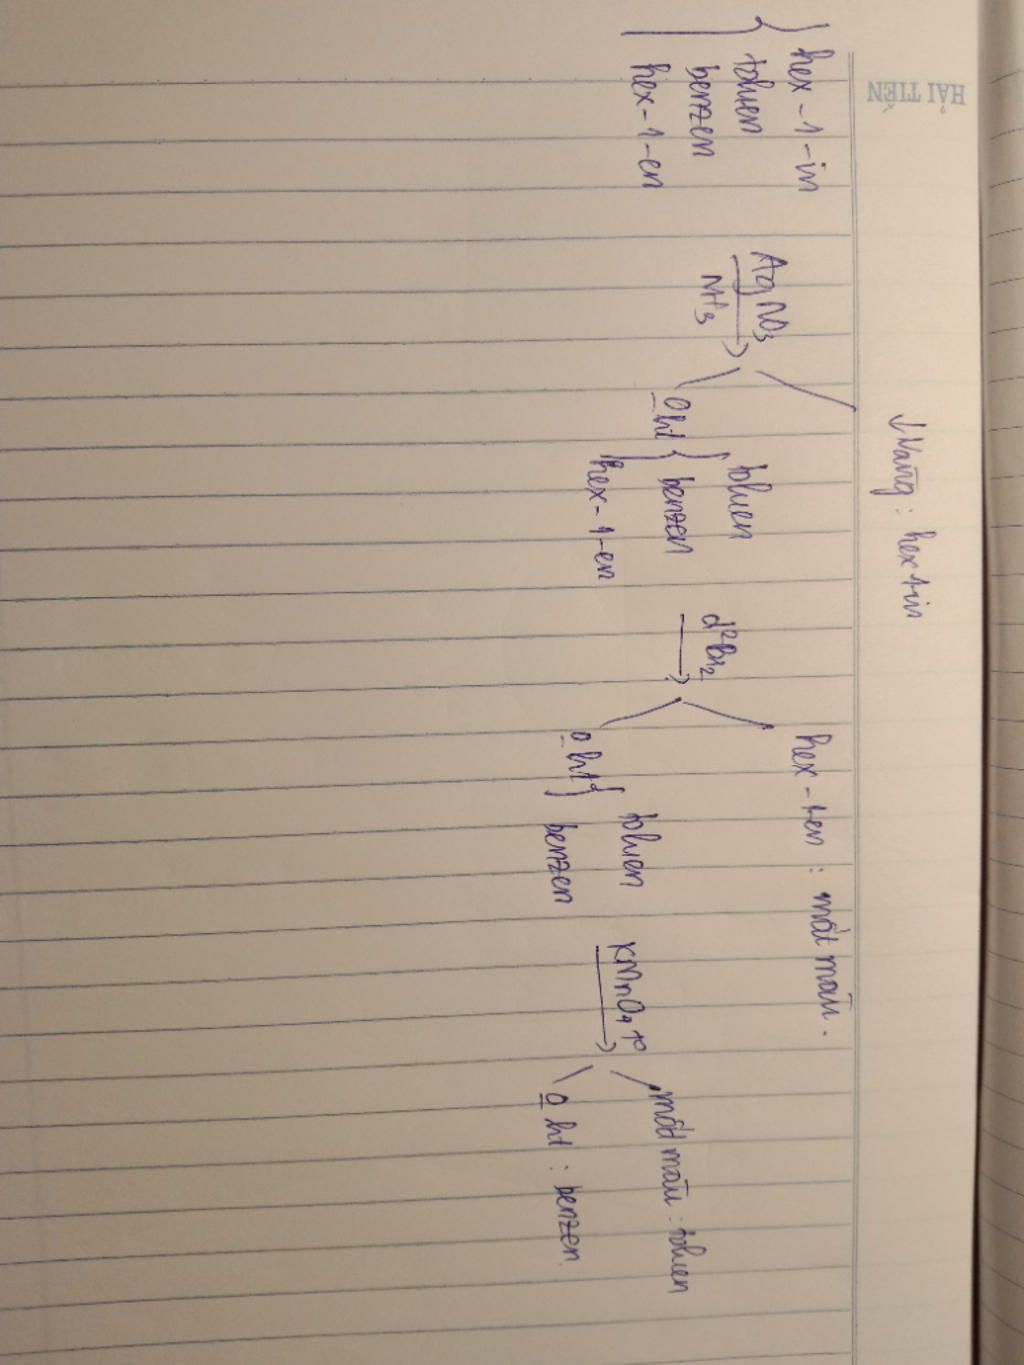 HẢI TIẾN
↓ Vàng : hex-1-in
hex-1-in
toluen
benzen
hex-1-en
AgNO3
NH3
0 ht
toluen
benzen
hex-1-en
d²Br2
hex-1-en : mất màu.
0 ht
toluen
benzen
KMnO4 t⁰
mất màu : toluen
0 ht : benzen